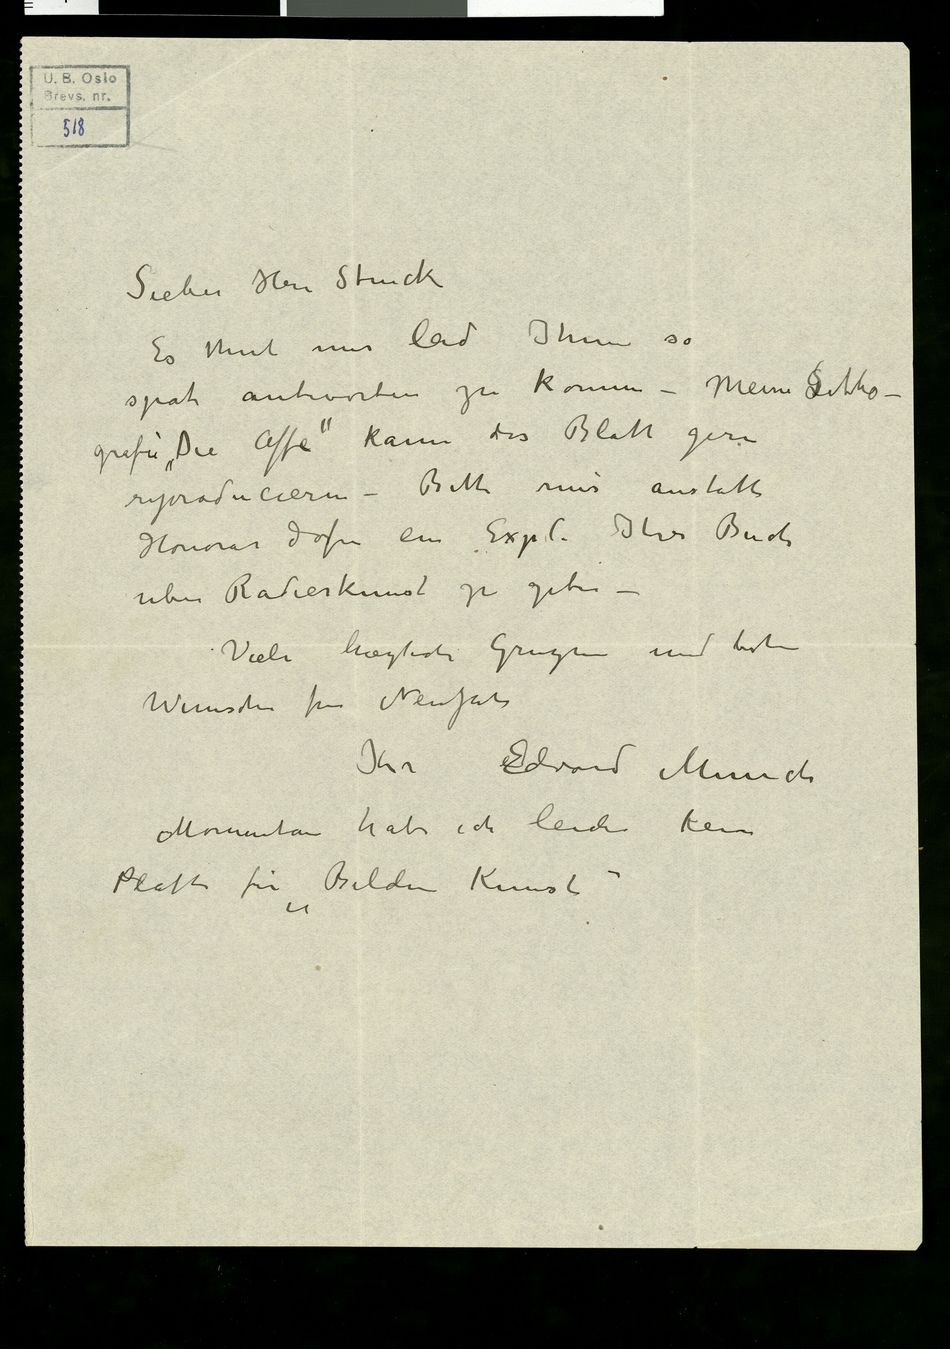 U. B. Oslo
Brevs. nr.
518
Lieber Herr Struck
Es thut mir leid Ihnen so
spät antworten zu können – Meine Litho-
grafie „Die Affe" kann das Blatt gern
reproducieren – Bitte mir anstatt
Honorar dafür ein Expl. Ihres Buch
über Radierkunst zu geben –
Viele herzliche Grüzen und beste
Wünsche für Neujahr
Ihr Edvard Munch
Momentan habe ich leider kein
Platte für „Bilden Kunst"